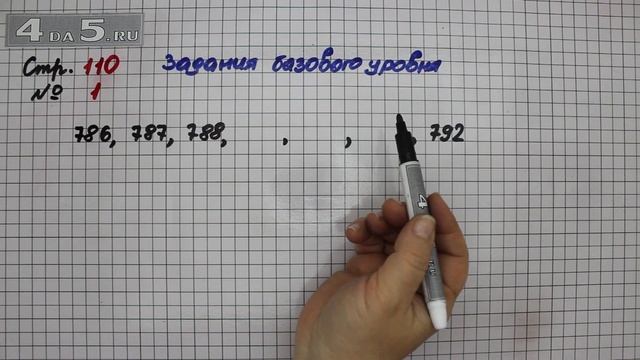 4 DA 5.RU
Стр. 110 Задания базового уровня
№ 1
786, 787, 788, , , , 792
4